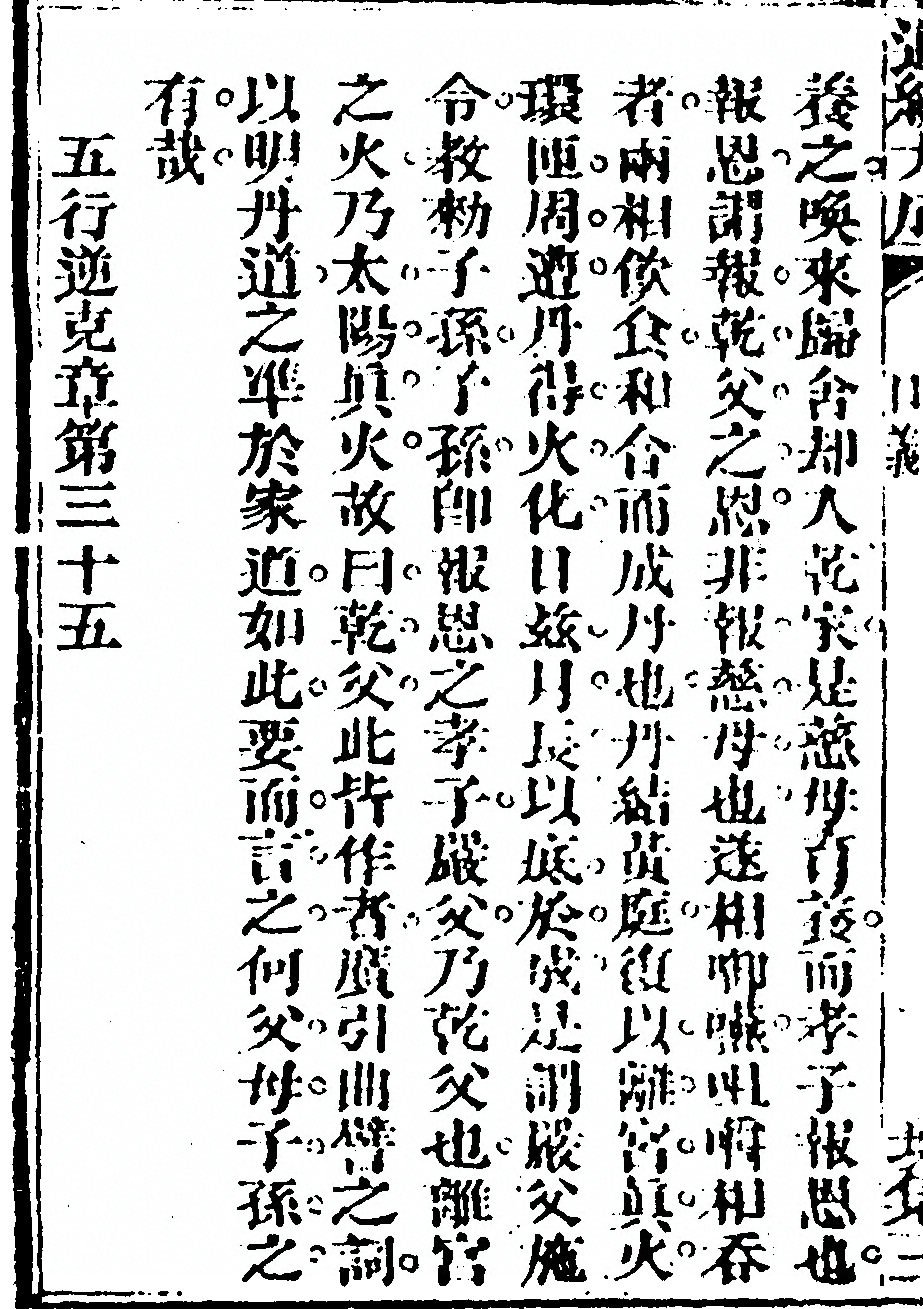 養之喚來歸舍却入乾家是慈母育養而孝子報恩也
報恩謂報乾父之恩非報慈母也遂相啣嚥咀嚼相吞
者兩相飲食和合而成丹也丹結黃庭復以離宮眞火
環匝周遭丹得火化日兹月長以底於成是謂嚴父施
令教勑子孫子孫卽報恩之孝子嚴父乃乾父也離宮
之火乃太陽眞火故曰乾父此皆作者廣引曲譬之詞
以明丹道之準於家道如此要而言之何父母子孫之
有哉
五行逆克章第三十五